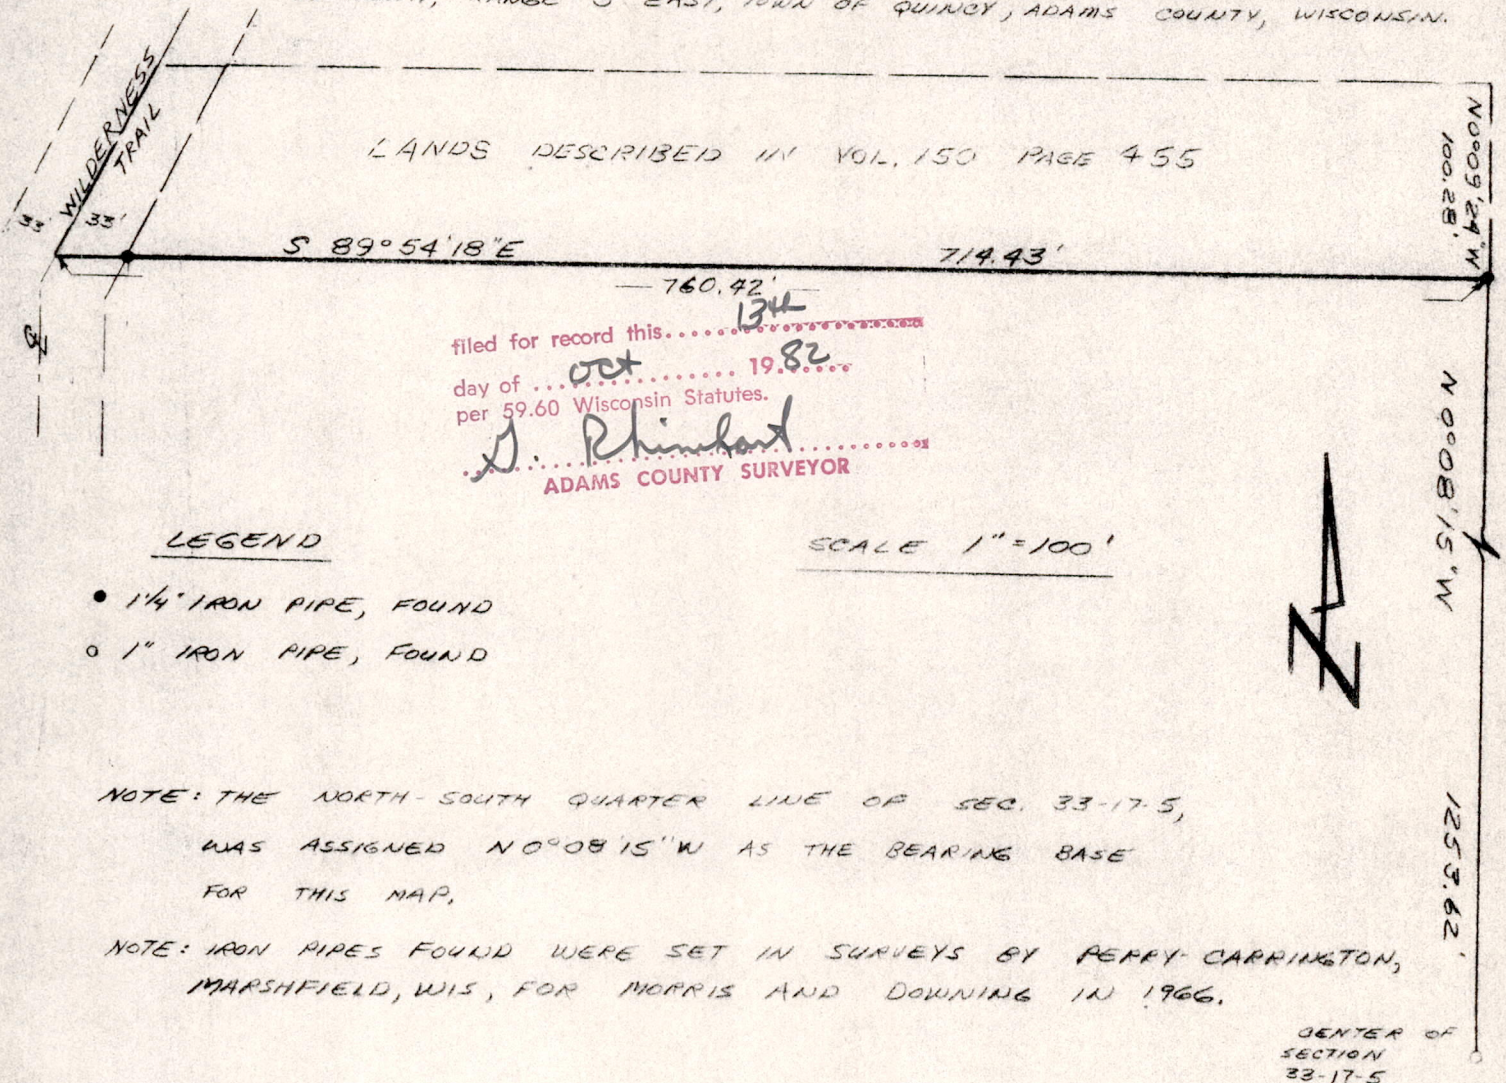 RANGE 5 EAST, TOWN OF QUINCY, ADAMS COUNTY, WISCONSIN.
WILDERNESS
TRAIL
LANDS DESCRIBED IN VOL. 150 PAGE 455
N0°09'24"W
100.28'
33'
33'
S 89°54'18"E
714.43'
760.42'
filed for record this 13th
day of Oct 1982
per 59.60 Wisconsin Statutes.
G. Rhinehart
ADAMS COUNTY SURVEYOR
N 0°08'15"W
LEGEND
SCALE 1"=100'
1¼" IRON PIPE, FOUND
1" IRON PIPE, FOUND
N
NOTE: THE NORTH-SOUTH QUARTER LINE OF SEC. 33-17-5,
WAS ASSIGNED N0°08'15"W AS THE BEARING BASE
FOR THIS MAP.
1253.62'
NOTE: IRON PIPES FOUND WERE SET IN SURVEYS BY PERRY-CARRINGTON,
MARSHFIELD, WIS, FOR MORRIS AND DOWNING IN 1966.
CENTER OF
SECTION
33-17-5